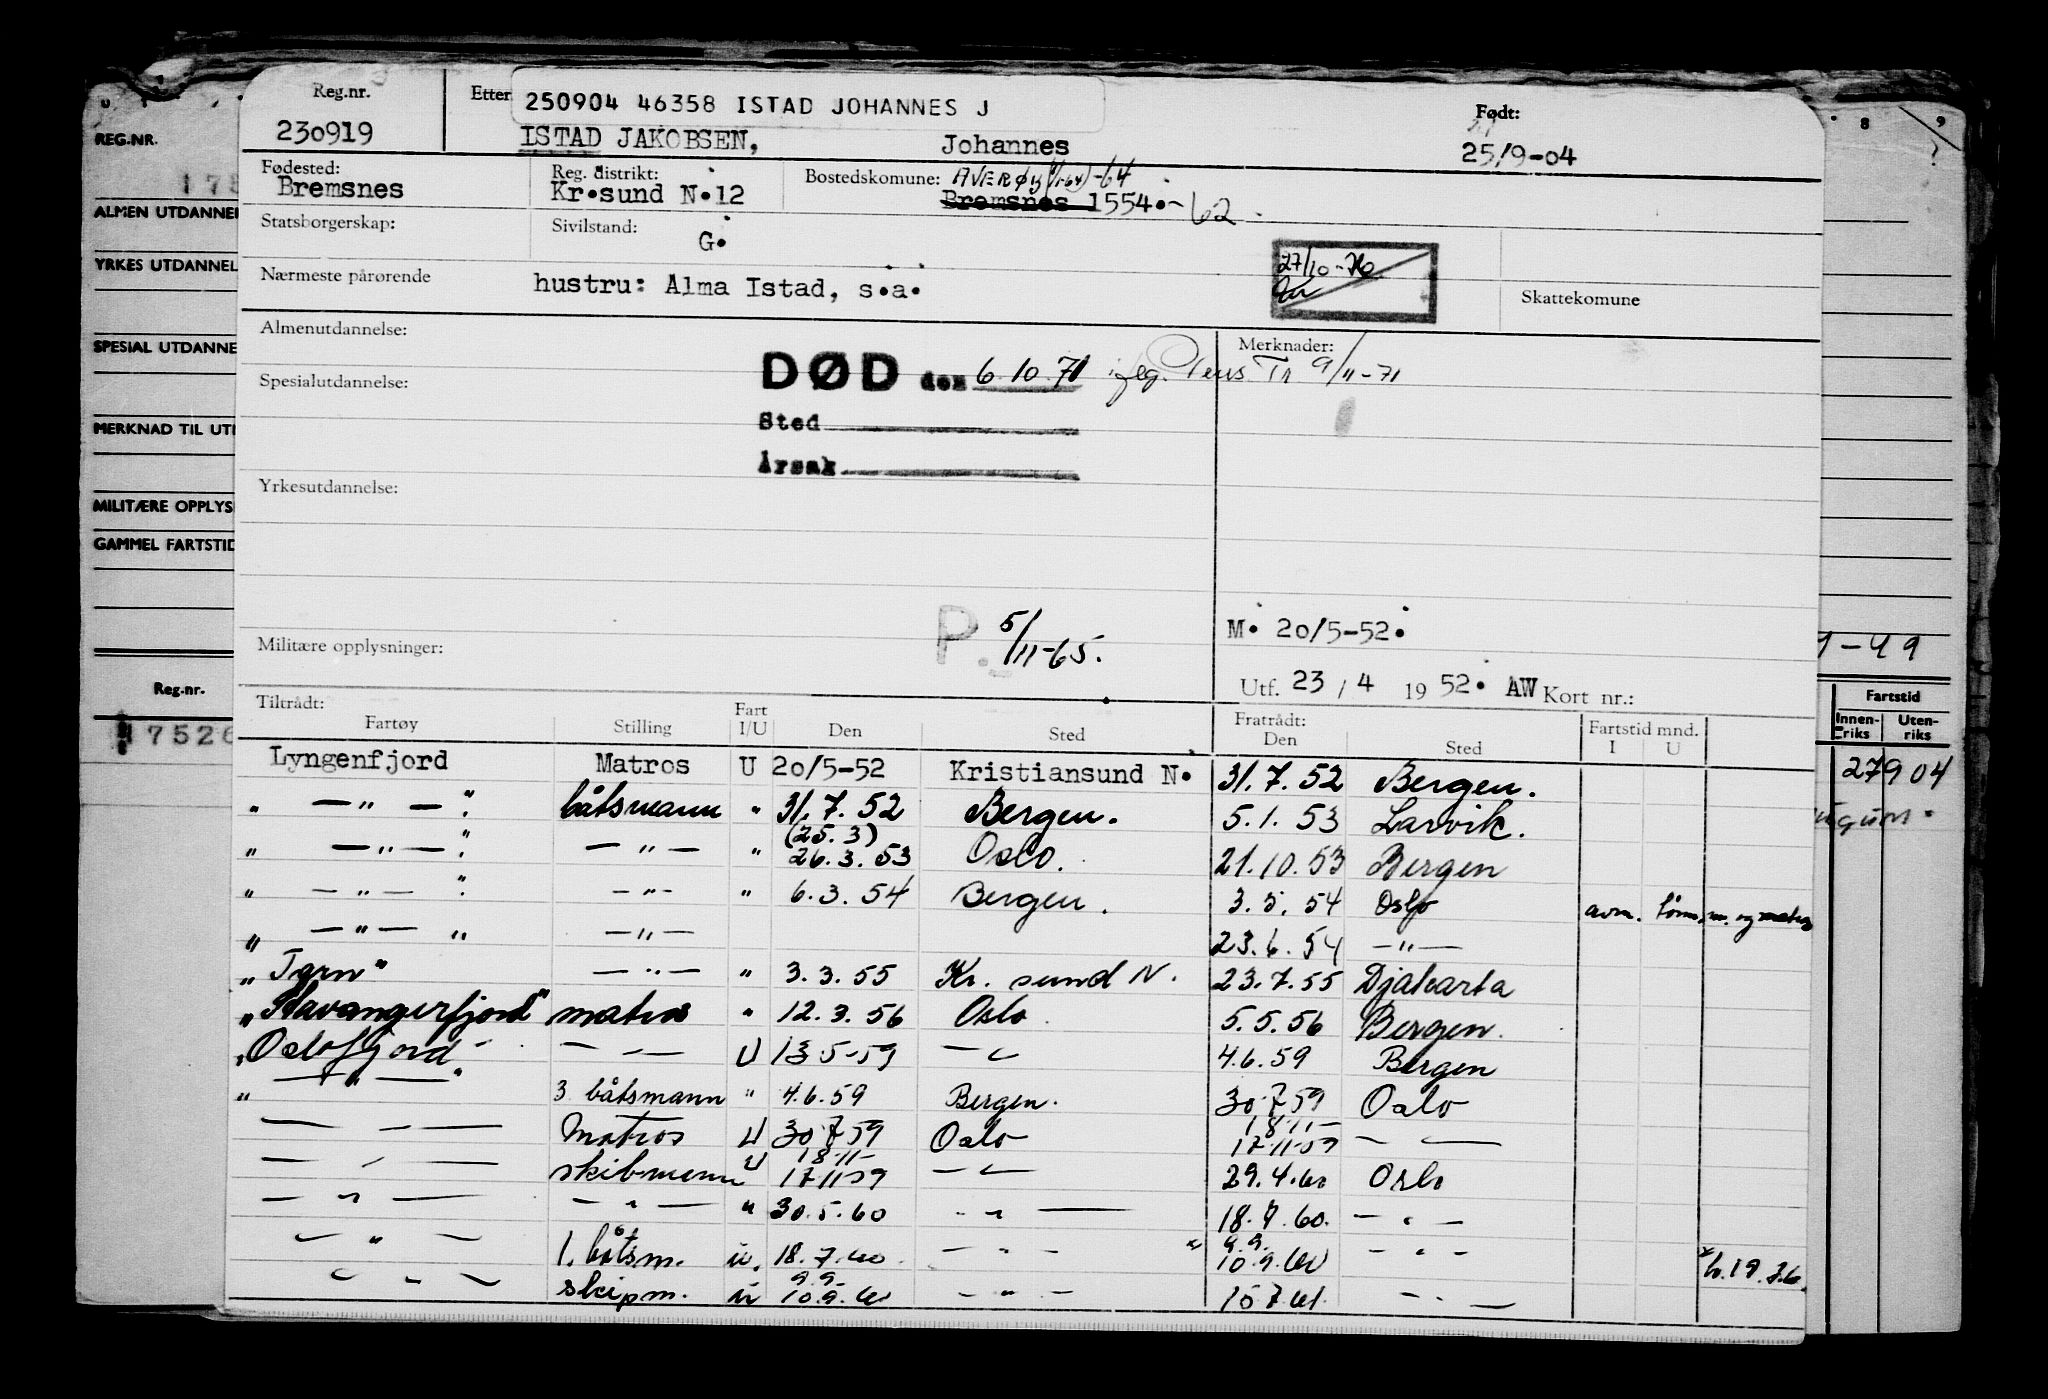 Reg.nr.
230919
Etter
250904 46358 ISTAD JOHANNES J
ISTAD JAKOBSEN, Johannes
Født:
25/9-04
Fødested:
Bremsnes
Reg. distrikt:
Kr.sund N.12
Bostedskomune: AVERØY (1/1-64) -64
Bremsnes 1554.- 62
Statsborgerskap:
Sivilstand: G.
Nærmeste pårørende hustru: Alma Istad, s.a.
27/10-76
Skattekomune
Almenutdannelse:
Merknader:
DØD den 6.10.71 Pens. Tr 9/11-71
Sted
Årsak
Spesialutdannelse:
Yrkesutdannelse:
Militære opplysninger:
P. 5/11-65.
M. 20/5-52.
Utf. 23 / 4 19 52. AW Kort nr.:
Tiltrådt: Fartøy Stilling Fart I/U Den Sted Fratrådt: Den Sted Fartstid mnd. I U
Lyngenfjord Matros U 20/5-52 Kristiansund N. 31.7.52 Bergen.
" —"— " båtsmann " 31.7.52 Bergen. 5.1.53 Larvik.
(25.3)
" —"— " —"— " 26.3.53 Oslo. 21.10.53 Bergen
" —"— " —"— " 6.3.54 Bergen. 3.5.54 Oslo avm. tømm. og matros
" —"— " —"— 23.6.54 —"—
"Tarn" —"— " 3.3.55 Kr. sund N. 23.7.55 Djakarta
"Stavangerfjord" matros " 12.3.56 Oslo 5.5.56 Bergen.
"Oslofjord" —"— U 13-5-59 —"— 4.6.59 Bergen
" —"— " 3. båtsmann " 4.6.59 Bergen. 30-7-59 Oslo
18-11-
—"— Matros U 30-7-59 Oslo 17-11-59 —"—
18-11-
—"— skibmann U 17-11-59 —"— 29.4.60 Oslo
—"— —"— " 30.5.60 —"— 18.7.60. —"—
9.9.
—"— 1. båtsm. u. 18.7.60. —"— x 10.9.60 —"— x
9.9.
—"— skipm. u 10.9.60 —"— 10.7.61. —"—
REG.NR.
ALMEN UTDANNEL
YRKES UTDANNEL
SPESIAL UTDANNE
MERKNAD TIL UT
MILITÆRE OPPLYS
GAMMEL FARTSTID
Reg.-nr.
7526
8 9
-49
Fartstid
Innenriks Utenriks
27904